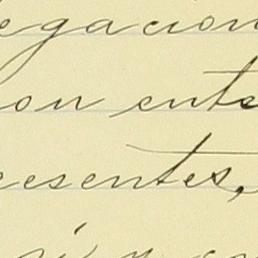 egacion
on ente
esentes,